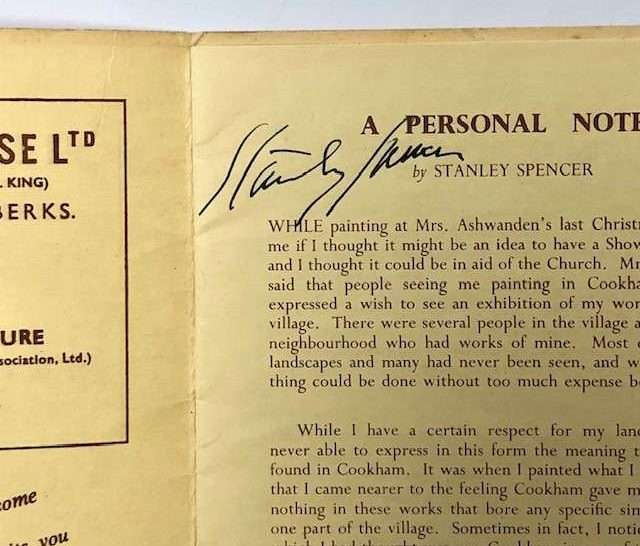 SE LTD
. KING)
BERKS.
URE
sociation, Ltd.)
ome
you
Stanley Spencer
A PERSONAL NOTE
by STANLEY SPENCER
WHILE painting at Mrs. Ashwanden's last Christm
me if I thought it might be an idea to have a Show
and I thought it could be in aid of the Church. Mr
said that people seeing me painting in Cookha
expressed a wish to see an exhibition of my wor
village. There were several people in the village a
neighbourhood who had works of mine. Most o
landscapes and many had never been seen, and w
thing could be done without too much expense be
While I have a certain respect for my land
never able to express in this form the meaning t
found in Cookham. It was when I painted what I
that I came nearer to the feeling Cookham gave m
nothing in these works that bore any specific sim
one part of the village. Sometimes in fact, I noti